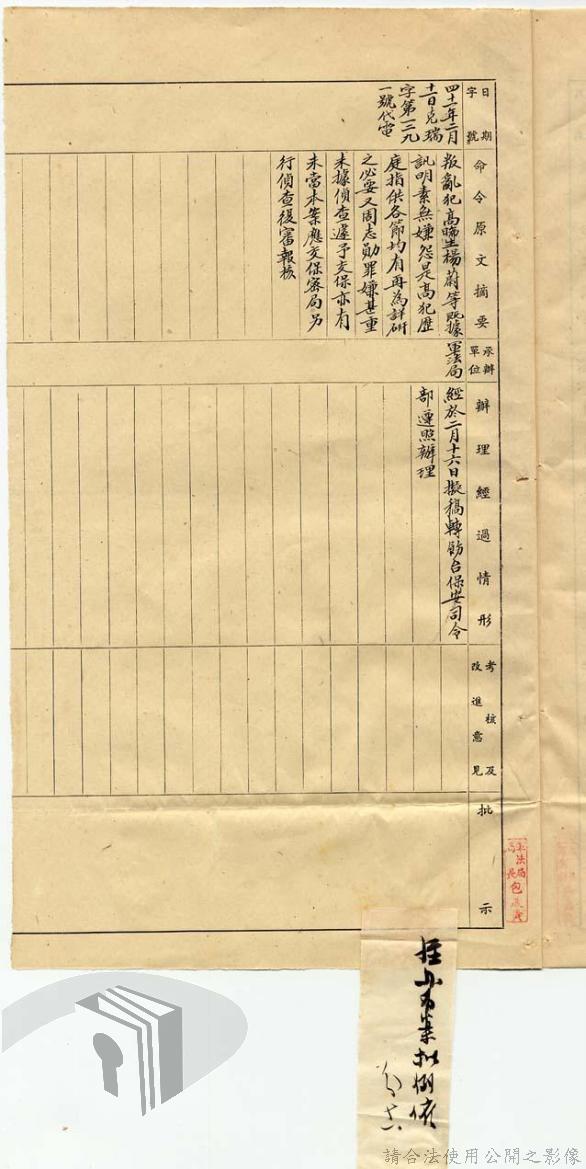 日期
字號
命令原文摘要
承辦
單位
辦理經過情形
考核及
改進意見
批示
四十一年二月
十一日克瑞
字第一三九
一號代電
叛亂犯高曉生楊蔚等既據
訊明素無嫌怨是高犯歷
庭指供各節均有再為詳研
之必要又周志勛罪嫌甚重
未據偵查遽予交保亦有
未當本案應交保密局另
行偵查後審報核
軍法局
經於二月十六日擬稿轉飭台保安司令
部遵照辦理
軍法局
局長包
案批
請合法使用公開之影像